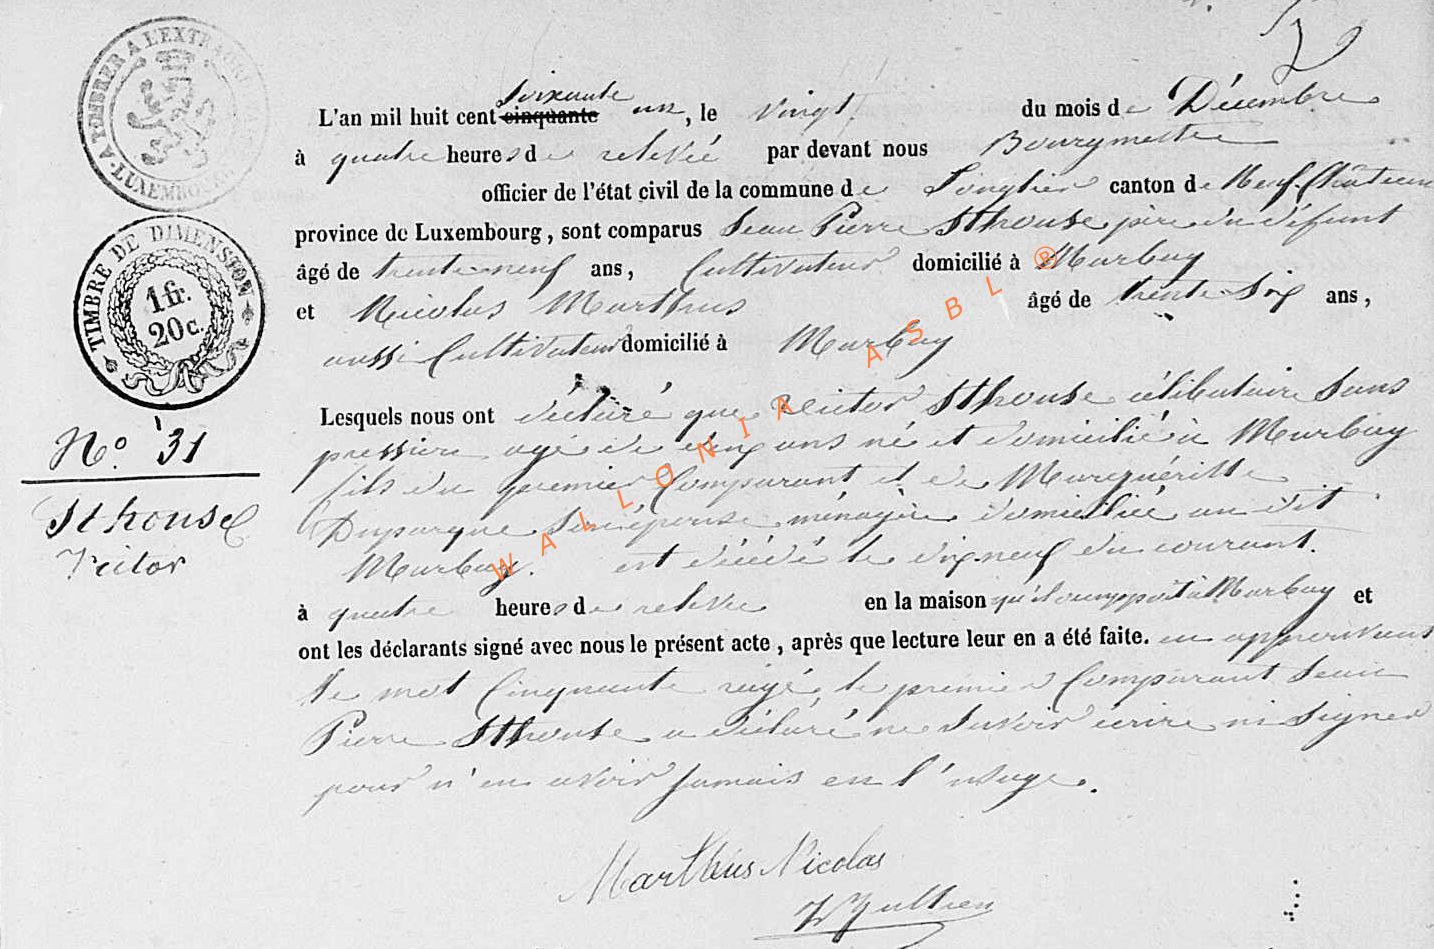 A TIMBRER A L'EXTRAORDINAIRE
LUXEMBOURG
TIMBRE DE DIMENSION
1 fr.
20 c.
N.° 31
Sthouse
Victor
L'an mil huit cent cinquante soixante un, le vingt du mois de Décembre
à quatre heures de relevée par devant nous Bourgmestre
officier de l'état civil de la commune de Longlier canton de Neuf-Château
province de Luxembourg, sont comparus Jean Pierre Sthouse père du défunt
âgé de trente-neuf ans, Cultivateur domicilié à Marbay
et Nicolas Marthus âgé de trente-Six ans,
aussi Cultivateur domicilié à Marbay
Lesquels nous ont déclaré que Victor Sthouse célibataire Sans
pression agé de cinq ans né et domicilié à Marbay
fils du premier Comparant et de Marguéritte
Duparque Son épouse ménagère domiciliée au dit
Marbay. est décédé le dix neuf du courant.
à quatre heures de relevée en la maison qu'il occupoit à Marbay et
ont les déclarants signé avec nous le présent acte, après que lecture leur en a été faite. en approuvant
le mot Cinquante rayé, le premier Comparant Jean
Pierre Sthouse a déclaré ne Savoir écrire ni Signer
pour n'en avoir jamais eu l'usage.
Marthus Nicolas
WALLONIA ASBL ®